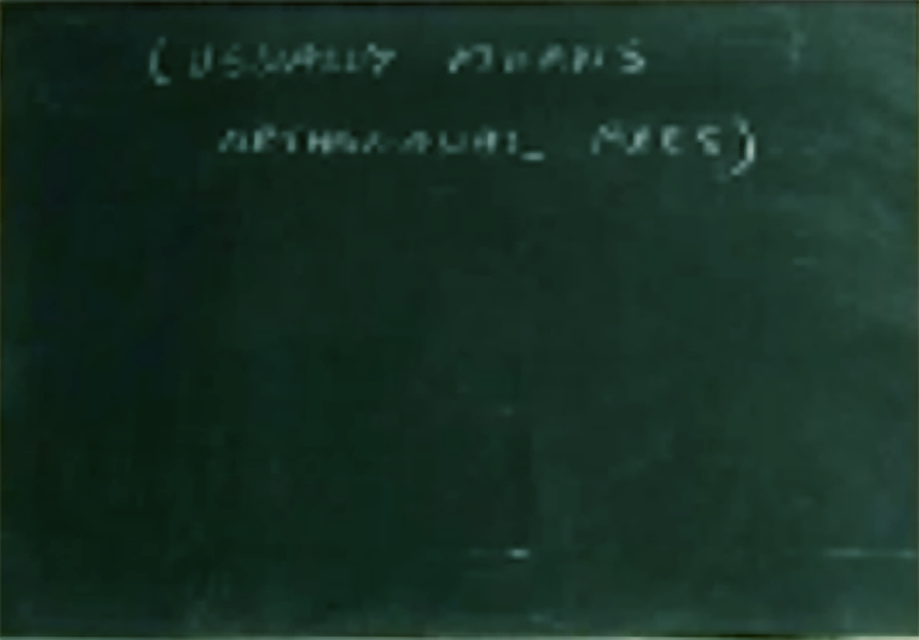 (USUALLY MEANS
ORTHOGONAL AXES)